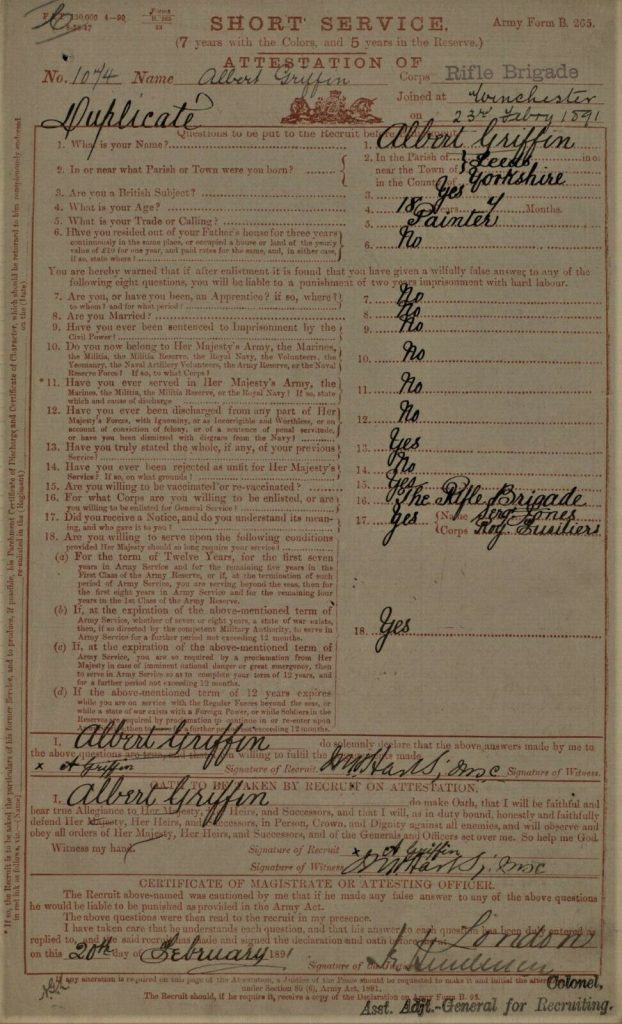 SHORT SERVICE.
Army Form B. 265.
(7 years with the Colors, and 5 years in the Reserve.)
ATTESTATION OF
No. 1074 Name Albert Griffin Corps Rifle Brigade
Joined at Winchester
on 23rd Febry 1891
Duplicate
Questions to be put to the Recruit before
1. What is your Name? 1. Albert Griffin
2. In or near what Parish or Town were you born? 2. In the Parish of Leeds in or
near the Town of
in the County of Yorkshire
3. Are you a British Subject? 3. Yes
4. What is your Age? 4. 18 Years 4 Months.
5. What is your Trade or Calling? 5. Painter
6. Have you resided out of your Father's house for three years 6. No
continuously in the same place, or occupied a house or land of the yearly
value of £10 for one year, and paid rates for the same, and, in either case,
if so, state where?
You are hereby warned that if after enlistment it is found that you have given a wilfully false answer to any of the
following eight questions, you will be liable to a punishment of two years imprisonment with hard labour.
7. Are you, or have you been, an Apprentice? if so, where? 7. No
to whom? and for what period?
8. Are you Married? 8. No
9. Have you ever been sentenced to Imprisonment by the 9. No
Civil Power?
10. Do you now belong to Her Majesty's Army, the Marines, 10. No
the Militia, the Militia Reserve, the Royal Navy, the Volunteers, the
Yeomanry, the Naval Artillery Volunteers, the Army Reserve, or the Naval
Reserve Force? If so, to what Corps?
*11. Have you ever served in Her Majesty's Army, the 11. No
Marines, the Militia, the Militia Reserve, or the Royal Navy? If so, state
which and cause of discharge
12. Have you ever been discharged from any part of Her 12. No
Majesty's Forces, with Ignominy, or as Incorrigible and Worthless, or on
account of conviction of felony, or of a sentence of penal servitude,
or have you been dismissed with disgrace from the Navy?
13. Have you truly stated the whole, if any, of your previous 13. Yes
Service?
14. Have you ever been rejected as unfit for Her Majesty's 14. No
Service? If so, on what grounds?
15. Are you willing to be vaccinated or re-vaccinated? 15. Yes
16. For what Corps are you willing to be enlisted, or are 16. The Rifle Brigade
you willing to be enlisted for General Service?
17. Did you receive a Notice, and do you understand its mean- 17. Yes Name Sergt Jones
ing, and who gave it to you? Corps Roy. Fusiliers
18. Are you willing to serve upon the following conditions
provided Her Majesty should so long require your service?
(a) For the term of Twelve Years, for the first seven
years in Army Service and for the remaining five years in the
First Class of the Army Reserve, or if, at the termination of such
period of Army Service, you are serving beyond the seas, then for
the first eight years in Army Service and for the remaining four
years in the 1st Class of the Army Reserve.
(b) If, at the expiration of the above-mentioned term of
Army Service, whether of seven or eight years, a state of war exists,
then, if so directed by the competent Military Authority, to serve in
Army Service for a further period not exceeding 12 months.
18. Yes
(c) If, at the expiration of the above-mentioned term of
Army Service, you are so required by a proclamation from Her
Majesty in case of imminent national danger or great emergency, then
to serve in Army Service so as to complete your term of 12 years, and
for a further period not exceeding 12 months.
(d) If the above-mentioned term of 12 years expires
while you are on service with the Regular Forces beyond the seas, or
while a state of war exists with a Foreign Power, or while Soldiers in the
Reserve are required by proclamation to continue in or re-enter upon
then for a further period not exceeding 12 months.
I, Albert Griffin do solemnly declare that the above answers made by me to
the above questions are true, and that I am willing to fulfil the
x A Griffin Signature of Recruit. Signature of Witness.
OATH TO BE TAKEN BY RECRUIT ON ATTESTATION.
I, Albert Griffin do make Oath, that I will be faithful and
bear true Allegiance to Her Majesty, Her Heirs, and Successors, and that I will, as in duty bound, honestly and faithfully
defend Her Majesty, Her Heirs, and Successors, in Person, Crown, and Dignity against all enemies, and will observe and
obey all orders of Her Majesty, Her Heirs, and Successors, and of the Generals and Officers set over me. So help me God.
Witness my hand
Signature of Recruit x A Griffin
Signature of Witness
CERTIFICATE OF MAGISTRATE OR ATTESTING OFFICER.
The Recruit above-named was cautioned by me that if he made any false answer to any of the above questions
he would be liable to be punished as provided in the Army Act.
The above questions were then read to the recruit in my presence.
I have taken care that he understands each question, and that his answer to each question has been duly entered as
replied to, and the said recruit has made and signed the declaration and oath before me at London
on this 20th day of February 1891
Signature of
Colonel,
If any alteration is required on this page of the Attestation, a Justice of the Peace should be requested to make it and initial the
under Section 80 (6), Army Act, 1881.
The Recruit should, if he require it, receive a copy of the Declaration on Army Form B.
Asst. Adjt.-General for Recruiting.